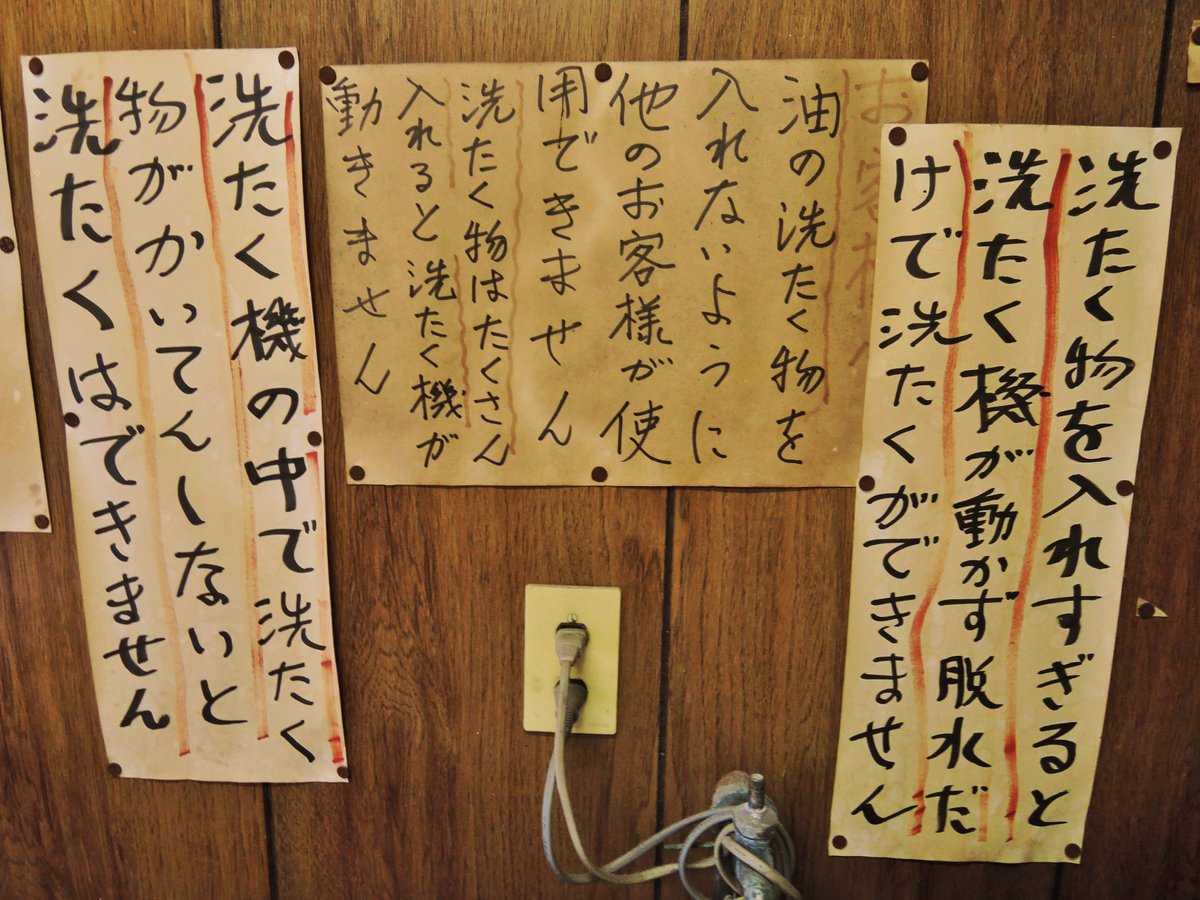 洗たく物を入れすぎると
洗たく機が動かず脱水だ
けで洗たくができません
お客様へ
油の洗たく物を
入れないように
他のお客様が使
用できません
洗たく物はたくさん
入れると洗たく機が
動きません
洗たく機の中で洗たく
物がかいてんしないと
洗たくはできません